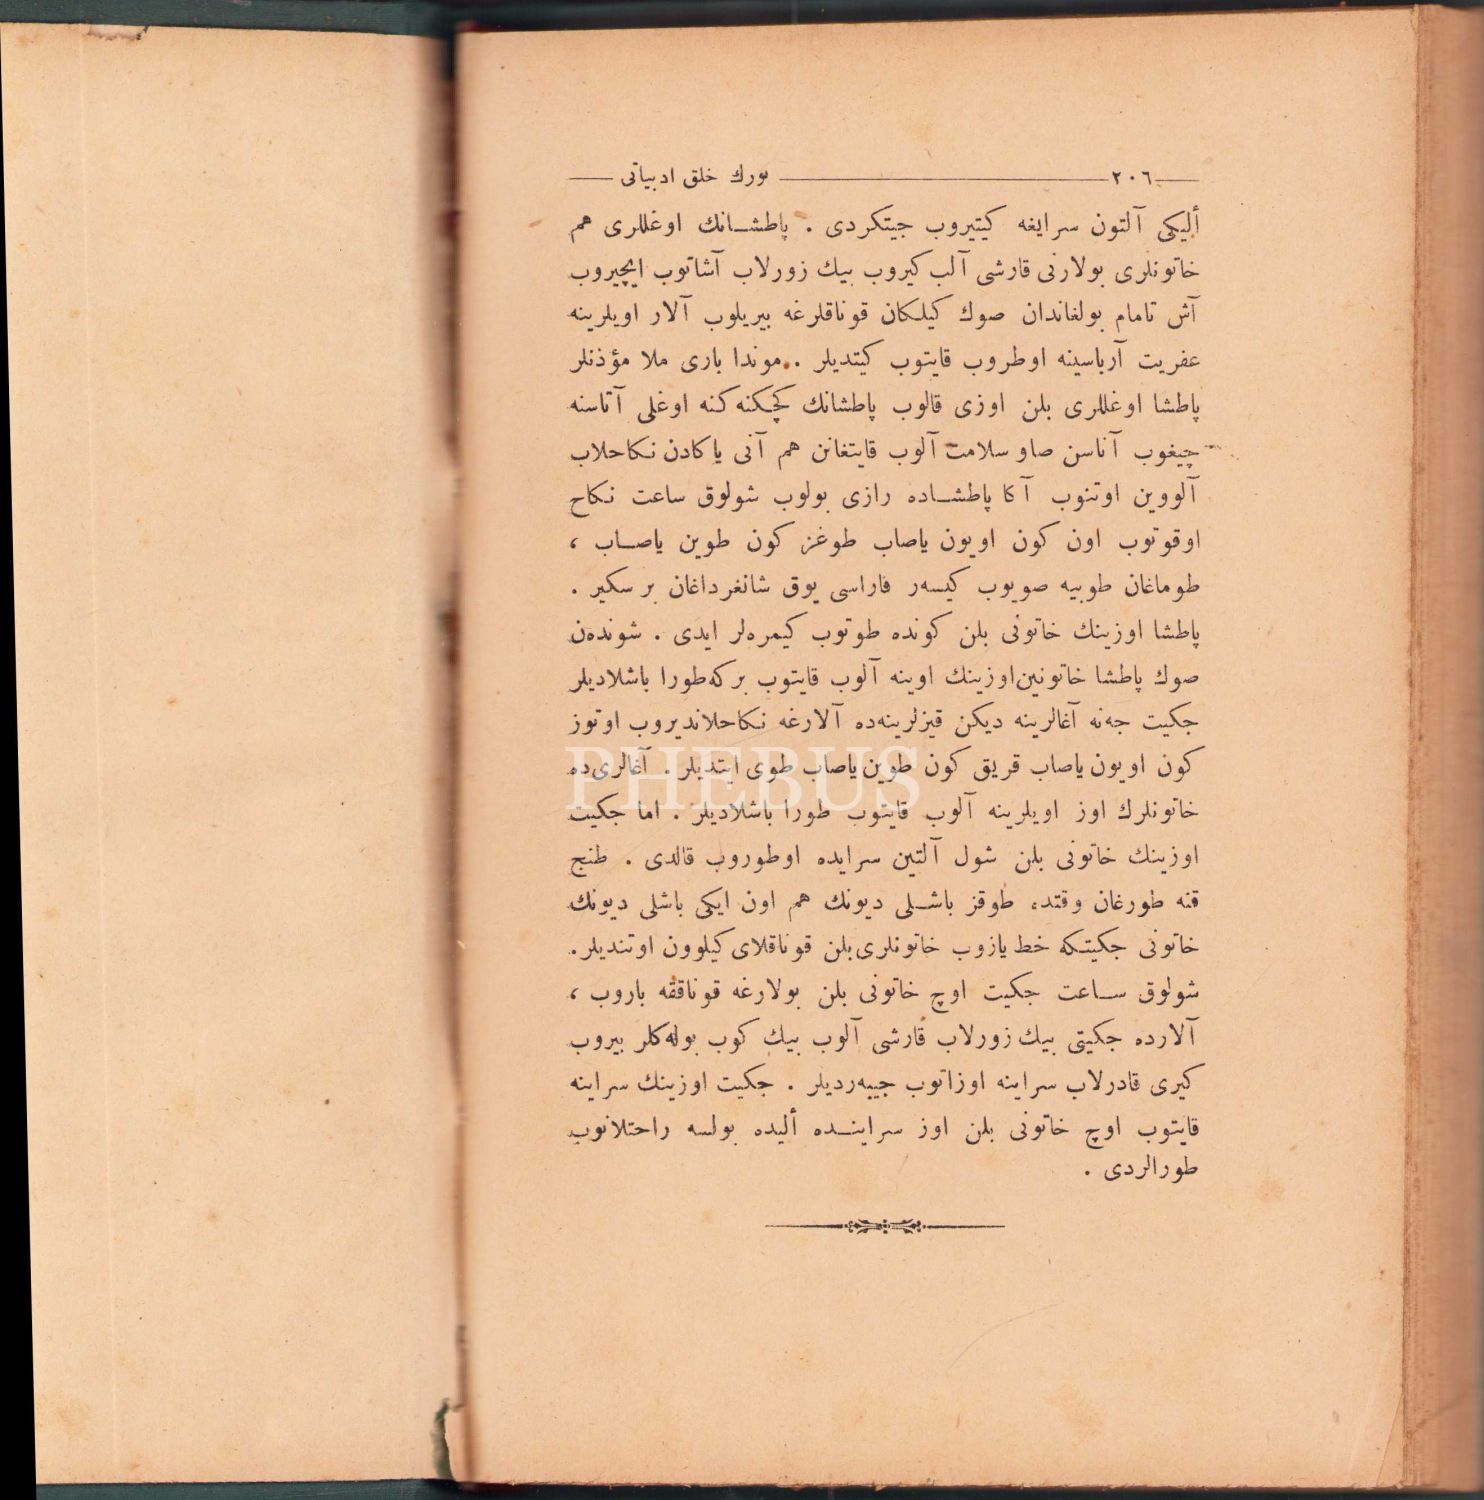 ٢٠٦ تورك خلق ادبياتى
أليكى آلتون سرايغه كيتيروب جيتكردى . پاطشـانك اوغللرى هم
خاتونلرى بولارنى قارشى آلب كيروب بيك زورلاب آشاتوب ايچيروب
آش تامام بولغاندان صوك كيلكان قوناقلرغه بيريلوب آلار اويلرينه
عفريت آرباسينه اوطروب قايتوب كيتديلر . موندا بارى ملا مؤذنلر
پاطشا اوغللرى بلن اوزى قالوب پاطشانك كچكنه كنه اوغلى آتاسنه
چيغوب آناسن صاو سلامت آلوب قايتغانن هم آنى ياكادن نكاحلاب
آلووين اوتنوب آكا پاطشـاده رازى بولوب شولوق ساعت نكاح
اوقوتوب اون كون اويون ياصاب طوغز كون طوين ياصـاب ،
طوماغان طوبيه صويوب كيسەر فاراسى يوق شانغرداغان بر سكير .
پاطشا اوزينك خاتونى بلن كونده طوتوب كيمرەلر ايدى . شوندەن
صوك پاطشا خاتونين اوزينك اوينه آلوب قايتوب بركه طورا باشلاديلر
جكيت جەنه آغالرينه ديكن قيزلرينەده آلارغه نكاحلانديروب اوتوز
كون اويون ياصاب قريق كون طوين ياصاب طوى ايتديلر . آغالرى ده
خاتونلرك اوز اويلرينه آلوب قايتوب طورا باشلاديلر . اما جكيت
اوزينك خاتونى بلن شول آلتين سرايده اوطوروب قالدى . طنج
قنه طورغان وقتده ، طوقز باشـلى ديونك هم اون ايكى باشلى ديونك
خاتونى جكيتكه خط يازوب خاتونلرى بلن قوناقلاى كيلوون اوتنديلر .
شولوق سـاعت جكيت اوچ خاتونى بلن بولارغه قوناققه باروب ،
آلارده جكيتى بيك زورلاب قارشى آلوب بيك كوب بولەكلر بيروب
كيرى قادرلاب سراينه اوزاتوب جيبەرديلر . جكيت اوزينك سراينه
قايتوب اوچ خاتونى بلن اوز سراينـده أليده بولسه راحتلانوب
طورالردى .
PHEBUS